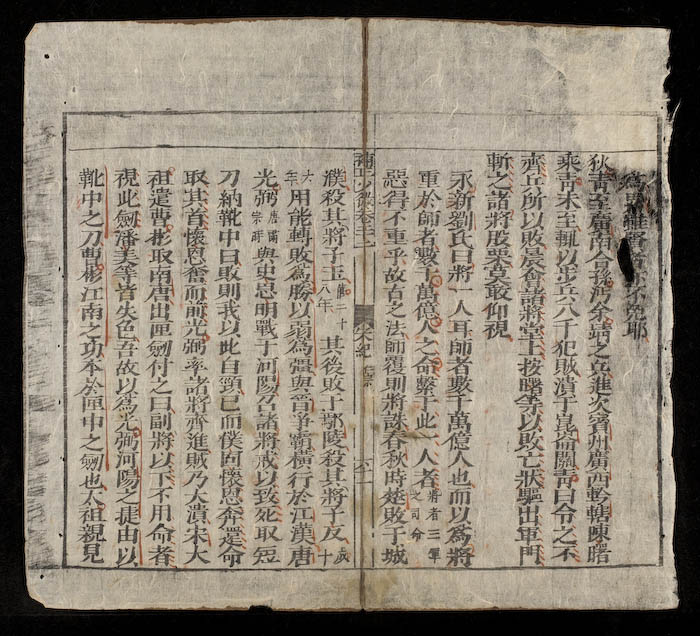 不免耶
狄靑至廣南合孫沔余靖之兵進次賓州廣西鈐轄陳曙
乘靑未至輒以步兵八千犯賊潰于崑崙關靑曰令之不
齊兵所以敗晨會諸將堂上按曙等以敗亡狀驅出軍門
斬之諸將股栗莫敢仰視
永新劉氏曰將一人耳師者數千萬億人也而以為將
重於師者數千萬億人之命繫于此一人者將者三軍之司命
惡得不重乎故古之法師覆則將誅春秋時楚敗于城
宋紀
濮殺其將子玉僖二十八年其後敗于鄢陵殺其將子反成十
六年用能轉敗為勝以弱為彊與晉爭霸橫行於江漢唐
光弼唐肅宗時與史思明戰于河陽召諸將戒以致死取短
刀納靴中曰敗則我以此自剄已而僕固懷恩奔還命
取其首懷恩奮而前光弼率諸將齊進賊乃大潰宋太
祖遣曹彬取南唐出匣劒付之曰副將以下不用命者
視此劒潘美等皆失色吾故以為光弼河陽之捷由以
靴中之刀曹彬江南之功本於匣中之劒也太祖親見